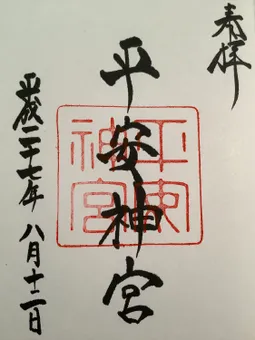 奉拝
平安神宮
平安神宮
平成二十七年 八月十二日